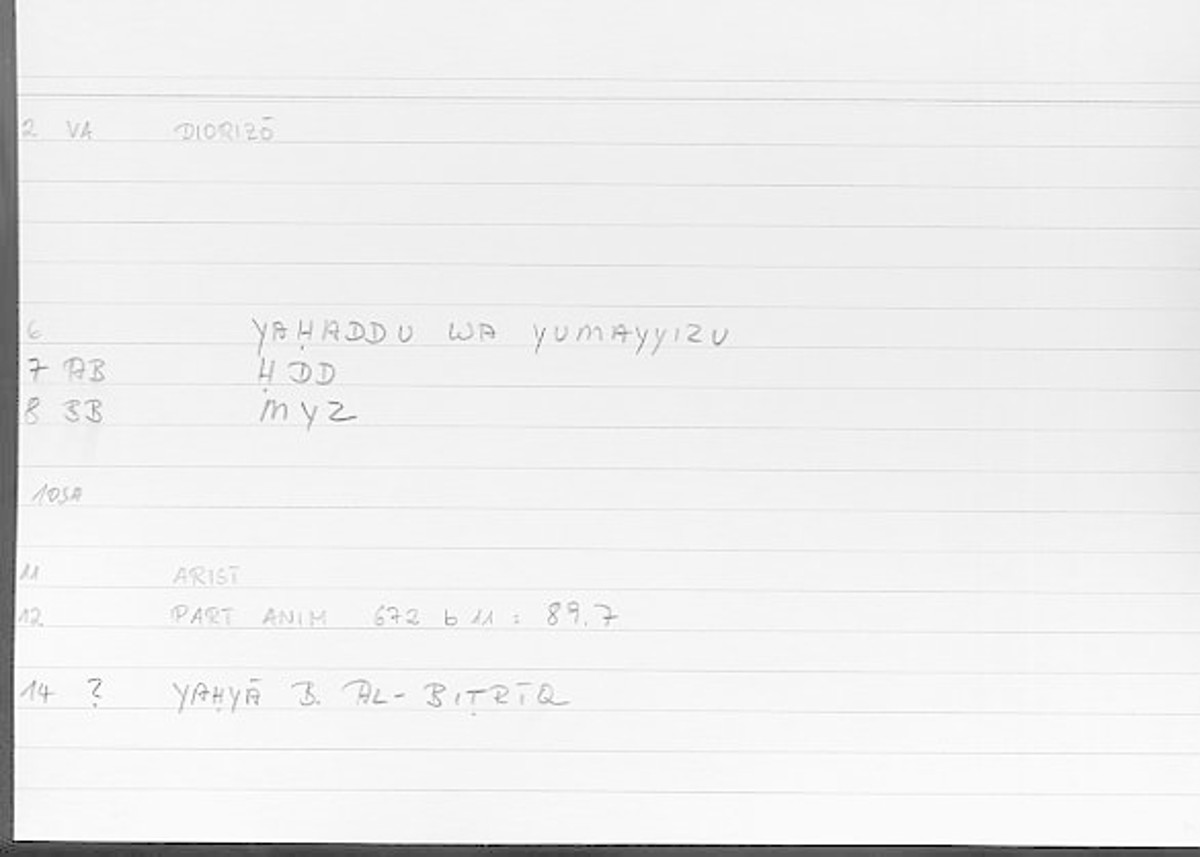 2 VA DIORIZŌ
6 YAḤADDU WA YUMAYYIZU
7 AB ḤDD
8 BB MYZ
10SA
11 ARIST
12 PART ANIM 672 b 11 : 89.7
14 ? YAḤYĀ B. AL-BIṬRĪQ